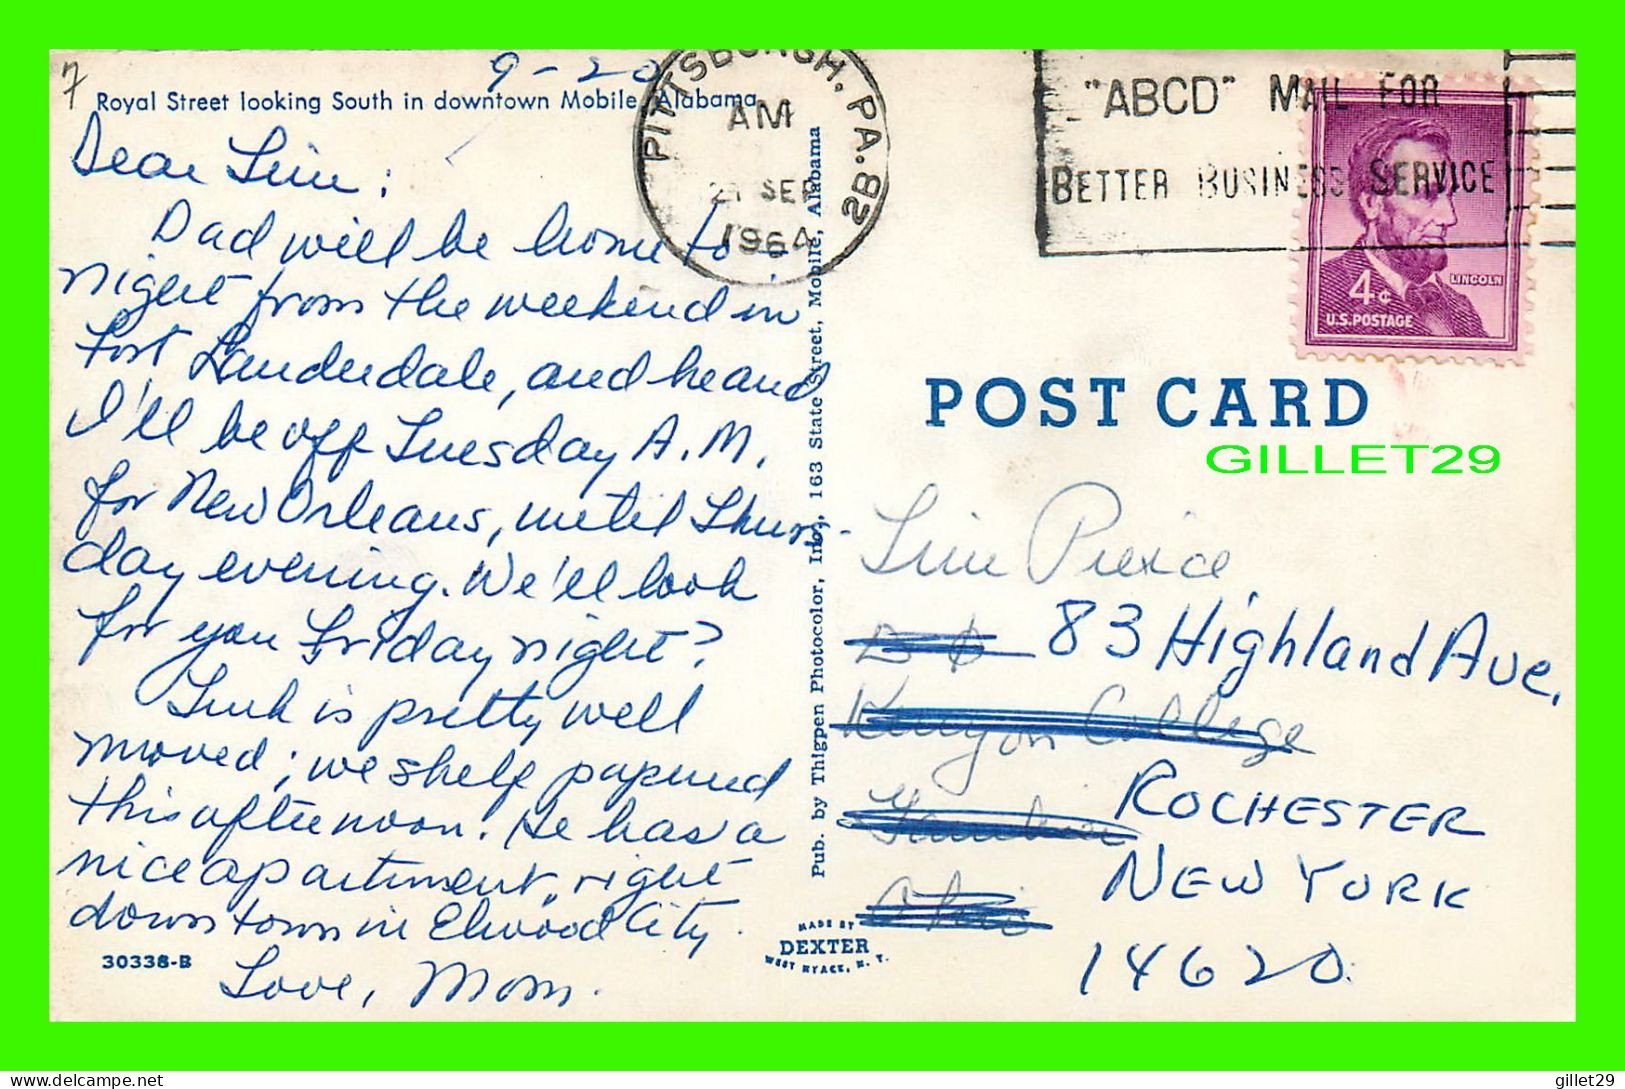 7
9-20
Royal Street looking South in downtown Mobile, Alabama
Dear Jim:
Dad will be home to-
night from the weekend in
Fort Lauderdale, and he and
I'll be off Tuesday A.M.
for New Orleans, until Thurs-
day evening. We'll look
for you Friday night?
is pretty well
moved; we shelf papered
this afternoon. He has a
nice apartment, right
downtown in Elwood City.
Love, Mom.
30338-B
Pub. by Thigpen Photocolor, Inc., 163 State Street, Mobile, Alabama
MADE BY
DEXTER
WEST NYACK, N. Y.
PITTSBURGH, PA. 2B
AM
21 SEP
1964
"ABCD" MAIL FOR
BETTER BUSINESS SERVICE
LINCOLN
4¢
U.S. POSTAGE
POST CARD
GILLET29
Jim Pierce
83 Highland Ave,
Kenyon College
ROCHESTER
Gambier
NEW YORK
Ohio
14620
gillet29